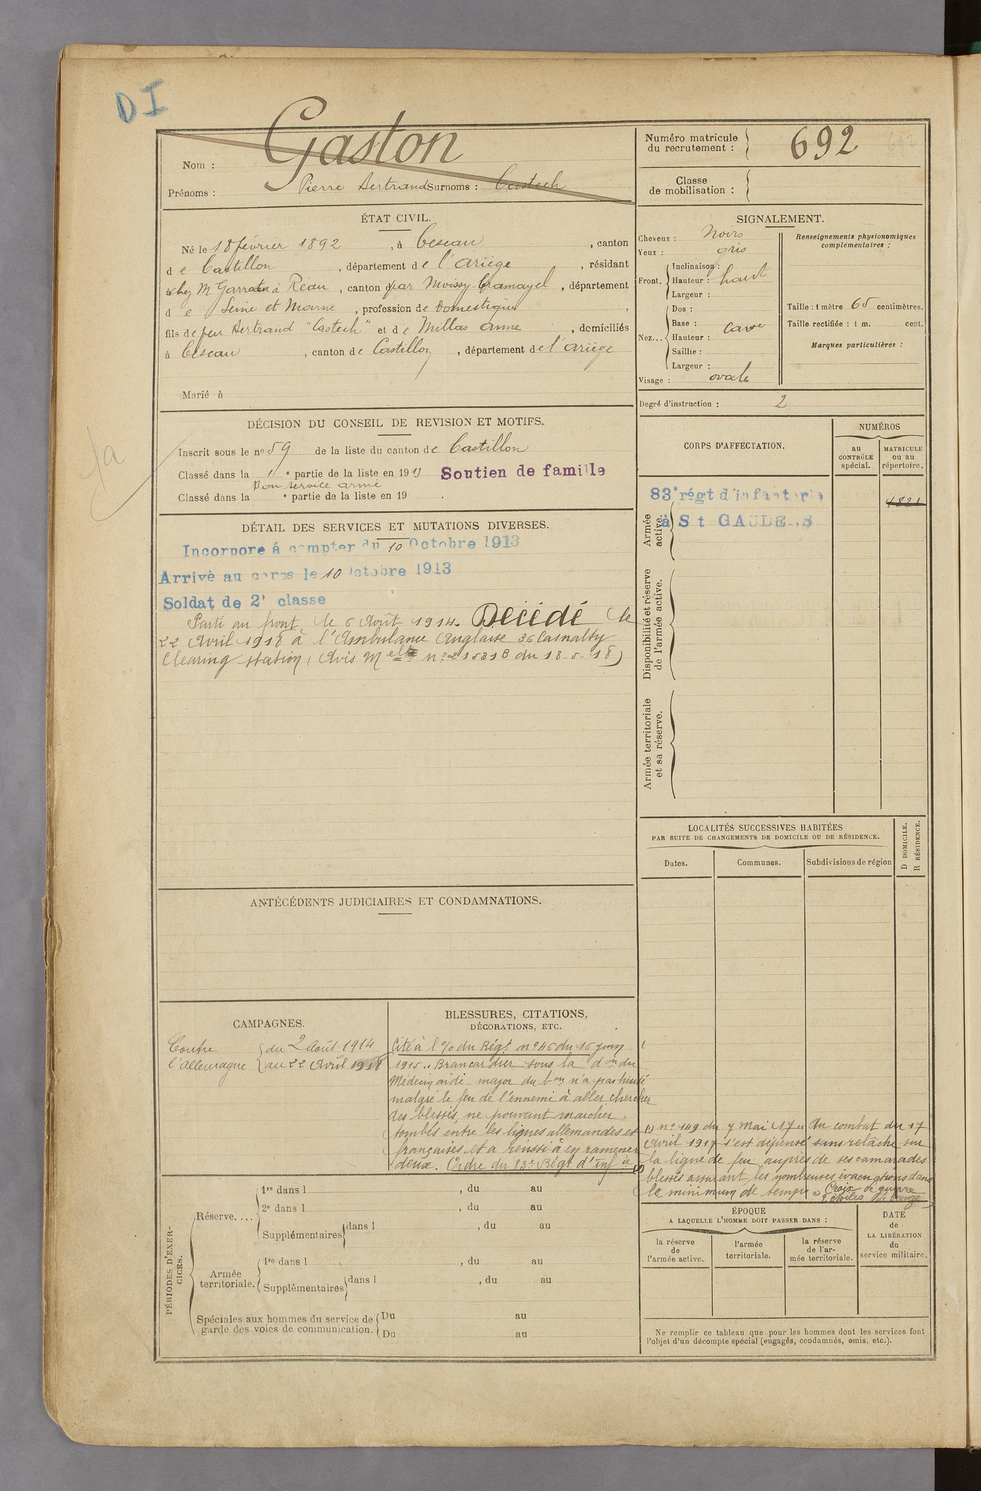 DI
Nom : Gaston
Prénoms : Pierre Bertrand Surnoms : Castech
Numéro matricule
du recrutement : 692
Classe
de mobilisation :
ÉTAT CIVIL.
Né le 18 février 1892 , à Cescau , canton
de Castillon , département de l'Ariège , résidant
chez M. Garrotin à Réau , canton par Moissy Cramayel , département
de Seine et Marne , profession de Domestique ,
fils de feu Bertrand "Castech" et de Millas Anne , domiciliés
à Cescau , canton de Castillon , département de l'Ariège
Marié à
SIGNALEMENT.
Cheveux : Noirs
Yeux : gris
Front. Inclinaison :
Hauteur : haut
Largeur :
Nez... Dos :
Base : cave
Hauteur :
Saillie :
Largeur :
Visage : ovale
Renseignements physionomiques
complémentaires :
Taille : 1 mètre 65 centimètres.
Taille rectifiée : 1 m. cent.
Marques particulières :
Degré d'instruction : 2
DÉCISION DU CONSEIL DE REVISION ET MOTIFS.
Inscrit sous le n° 59 de la liste du canton de Castillon
Classé dans la 1e partie de la liste en 1913 Soutien de famille
Bon service armé
Classé dans la e partie de la liste en 19 .
DÉTAIL DES SERVICES ET MUTATIONS DIVERSES.
Incorporé à compter du 10 Octobre 1913
Arrivé au corps le 10 Octobre 1913
Soldat de 2e classe
Parti au front, le 6 Août 1914. Décédé le
22 Avril 1918 à l'Ambulance Anglaise 36 Casualty
Clearing station (Avis Melle n° 21531B du 18.5.18)
CORPS D'AFFECTATION.
NUMÉROS
AU
CONTRÔLE
spécial.
MATRICULE
ou au
répertoire.
Armée
active.
83e régt d'infanterie
à St GAUDENS
4821
Disponibilité et réserve
de l'armée active.
Armée territoriale
et sa réserve.
LOCALITÉS SUCCESSIVES HABITÉES
PAR SUITE DE CHANGEMENTS DE DOMICILE OU DE RÉSIDENCE.
Dates.
Communes.
Subdivisions de région
D DOMICILE.
R RÉSIDENCE.
ANTÉCÉDENTS JUDICIAIRES ET CONDAMNATIONS.
CAMPAGNES.
Contre du 2 Août 1914
l'Allemagne au 22 Avril 1918
BLESSURES, CITATIONS,
DÉCORATIONS, ETC.
Cité à l'o/ du Régt n° 46 du 16 juin
1915 « Brancardier sous la don du
Médecin aide-major du bon n'a pas hésité
malgré le feu de l'ennemi à aller chercher
des blessés, ne pouvant marcher,
tombés entre les lignes allemandes et
françaises, et a réussi à en ramener
deux. Ordre du 83e Régt d'Inf ie
n° 149 du 7 Mai 17 « Au combat du 17
Avril 1917 s'est dépensé sans relâche sur
la ligne de feu auprès de ses camarades
blessés assurant les nombreuses évacuations dans
le minimum de temps » Croix de guerre
2 étoiles de bronze
PÉRIODES D'EXER-
CICES.
Réserve....
1re dans l , du au
2e dans l , du au
Supplémentaires dans l , du au
Armée
territoriale.
1re dans l , du au
Supplémentaires dans l , du au
Spéciales aux hommes du service de
garde des voies de communication.
Du au
Du au
ÉPOQUE
A LAQUELLE L'HOMME DOIT PASSER DANS :
la réserve
de
l'armée active.
l'armée
territoriale.
la réserve
de l'ar-
mée territoriale.
DATE
de
LA LIBÉRATION
du
service militaire.
Ne remplir ce tableau que pour les hommes dont les services font
l'objet d'un décompte spécial (engagés, condamnés, omis, etc.).